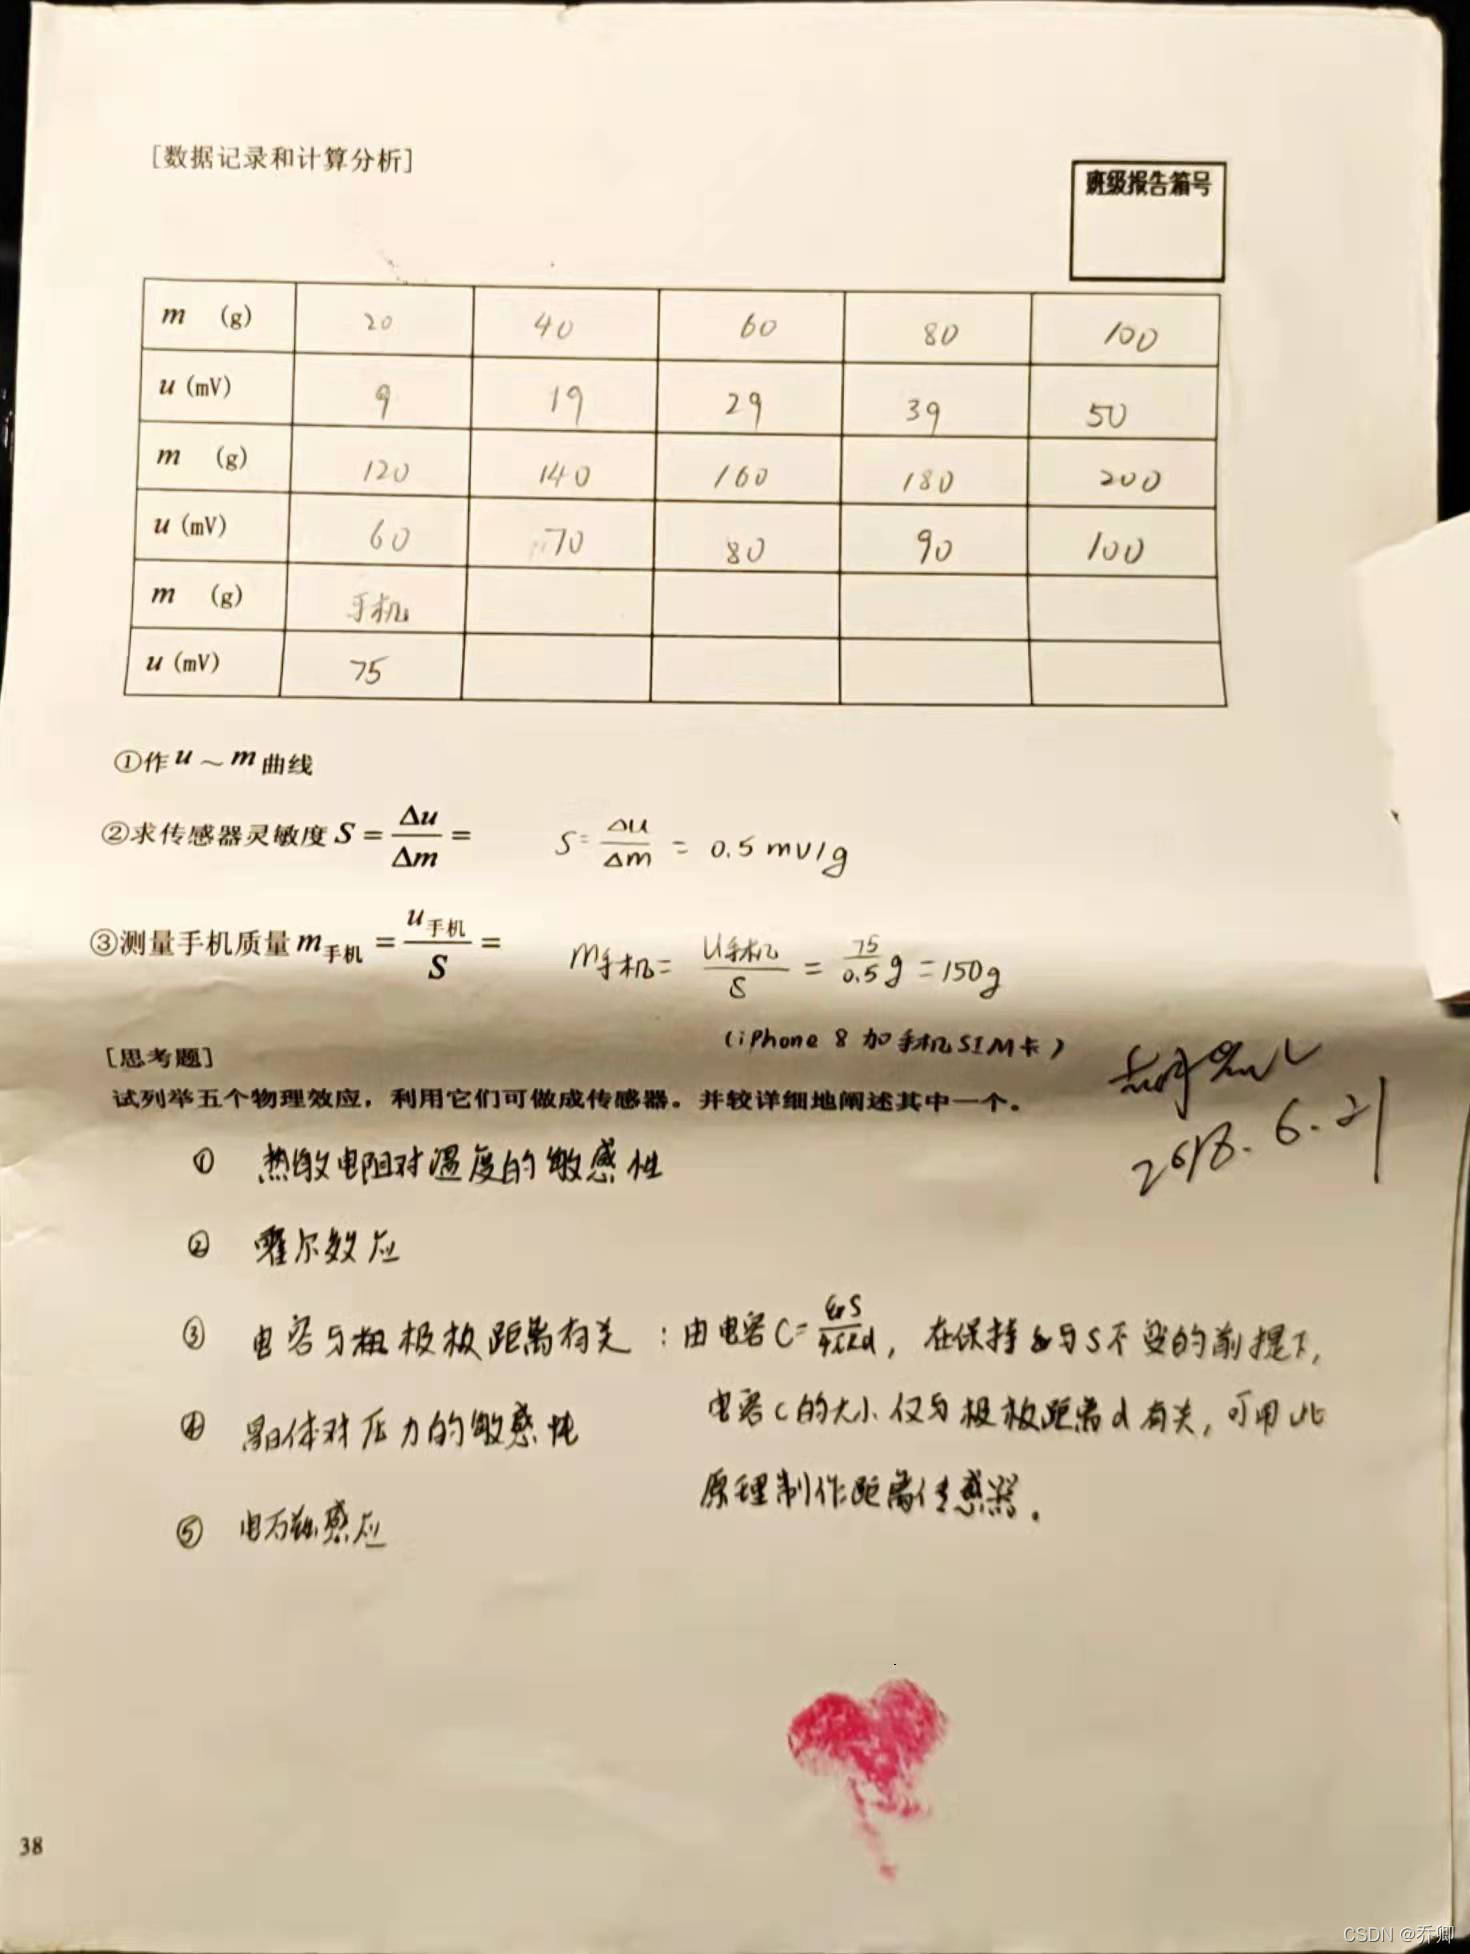 [数据记录和计算分析]
班级报告箱号
m (g) 20 40 60 80 100
u (mV) 9 19 29 39 50
m (g) 120 140 160 180 200
u (mV) 60 70 80 90 100
m (g) 手机
u (mV) 75
①作 u ~ m 曲线
②求传感器灵敏度 S = Δu/Δm = S = Δu/Δm = 0.5 mV/g
③测量手机质量 m手机 = u手机/S = m手机 = U手机/S = 75/0.5 g = 150g
(iPhone 8 加手机SIM卡)
[思考题]
试列举五个物理效应，利用它们可做成传感器。并较详细地阐述其中一个。
2018.6.21
① 热敏电阻对温度的敏感性
② 霍尔效应
③ 电容与极板距离有关：由电容C=εrS/4πkd，在保持ε与S不变的前提下，
电容C的大小仅与极板距离d有关，可用此
④ 晶体对压力的敏感性
原理制作距离传感器。
⑤ 电磁感应
38
CSDN @乔卿